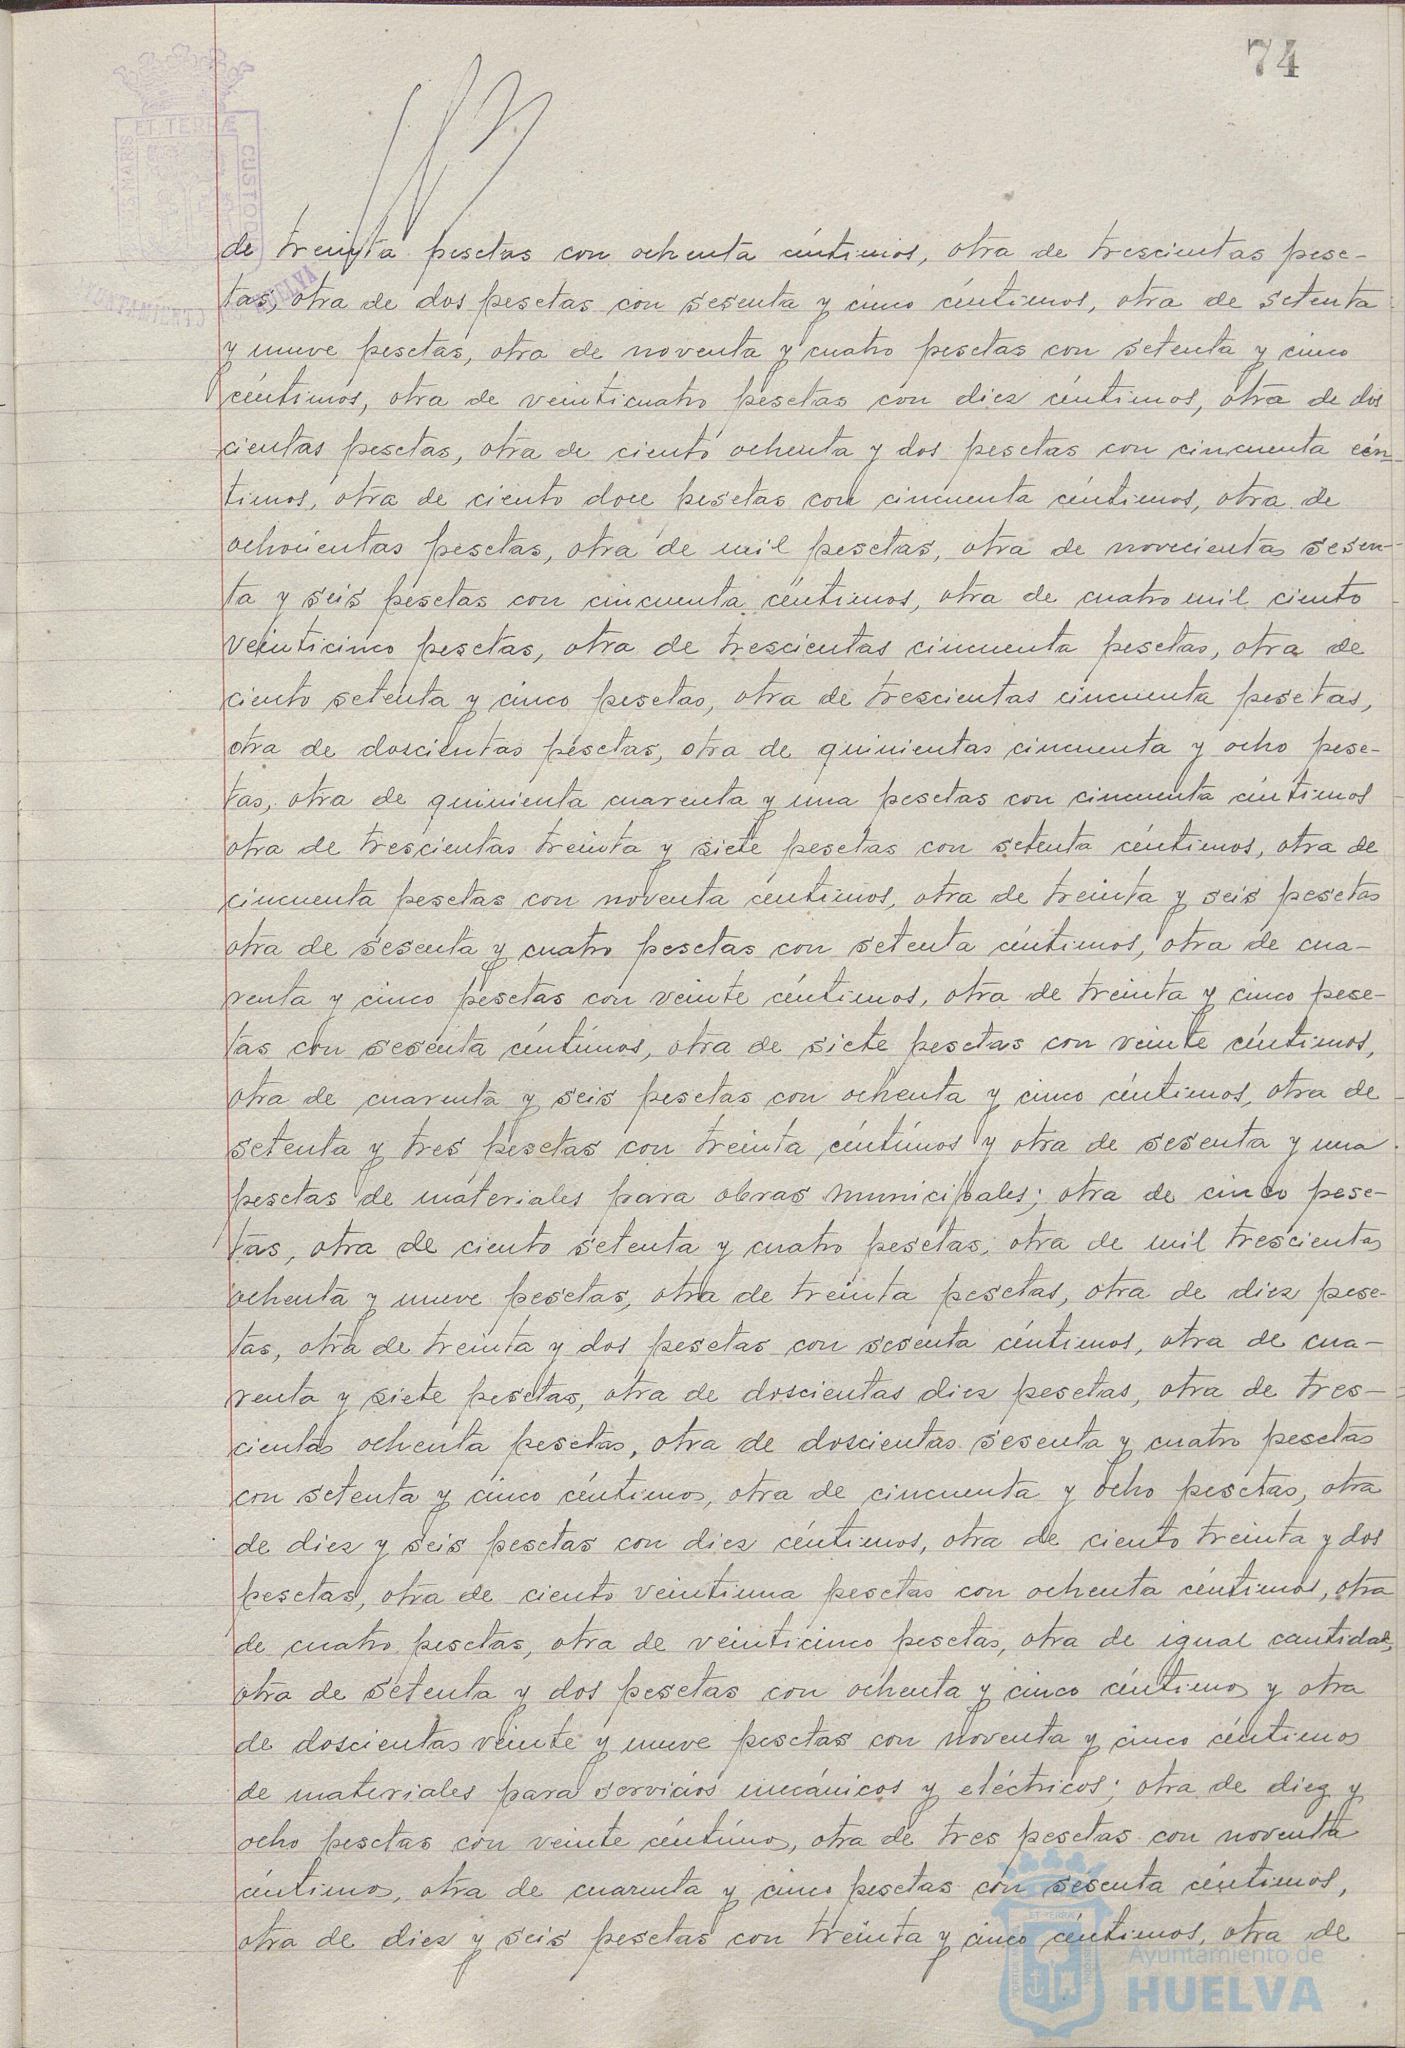 74
ET TERRÆ
S MARIS
CUSTO
AYUNTAMIENTO HUELVA
de treinta pesetas con ochenta céntimos, otra de trescientas pese-
tas, otra de dos pesetas con sesenta y cinco céntimos, otra de setenta
y nueve pesetas, otra de noventa y cuatro pesetas con setenta y cinco
céntimos, otra de veinticuatro pesetas con diez céntimos, otra de dos
cientas pesetas, otra de ciento ochenta y dos pesetas con cincuenta cén-
timos, otra de ciento doce pesetas con cincuenta céntimos, otra de
ochocientas pesetas, otra de mil pesetas, otra de novecientas sesen-
ta y seis pesetas con cincuenta céntimos, otra de cuatro mil ciento
veinticinco pesetas, otra de trescientas cincuenta pesetas, otra de
ciento setenta y cinco pesetas, otra de trescientas cincuenta pesetas,
otra de doscientas pesetas, otra de quinientas cincuenta y ocho pese-
tas, otra de quinienta cuarenta y una pesetas con cincuenta céntimos
otra de trescientas treinta y siete pesetas con setenta céntimos, otra de
cincuenta pesetas con noventa céntimos, otra de treinta y seis pesetas
otra de sesenta y cuatro pesetas con setenta céntimos, otra de cua-
renta y cinco pesetas con veinte céntimos, otra de treinta y cinco pese-
tas con sesenta céntimos, otra de siete pesetas con veinte céntimos,
otra de cuarenta y seis pesetas con ochenta y cinco céntimos, otra de
setenta y tres pesetas con treinta céntimos y otra de sesenta y una
pesetas de materiales para obras municipales; otra de cinco pese-
tas, otra de ciento setenta y cuatro pesetas, otra de mil trescientas
ochenta y nueve pesetas, otra de treinta pesetas, otra de diez pese-
tas, otra de treinta y dos pesetas con sesenta céntimos, otra de cua-
renta y siete pesetas, otra de doscientas diez pesetas, otra de tres-
cientas ochenta pesetas, otra de doscientas sesenta y cuatro pesetas
con setenta y cinco céntimos, otra de cincuenta y ocho pesetas, otra
de diez y seis pesetas con diez céntimos, otra de ciento treinta y dos
pesetas, otra de ciento veintiuna pesetas con ochenta céntimos, otra
de cuatro pesetas, otra de veinticinco pesetas, otra de igual cantidad,
otra de setenta y dos pesetas con ochenta y cinco céntimos y otra
de doscientas veinte y nueve pesetas con noventa y cinco céntimos
de materiales para servicios mecánicos y eléctricos; otra de diez y
ocho pesetas con veinte céntimos, otra de tres pesetas con noventa
céntimos, otra de cuarenta y cinco pesetas con sesenta céntimos,
otra de diez y seis pesetas con treinta y cinco céntimos, otra de
Ayuntamiento de
HUELVA